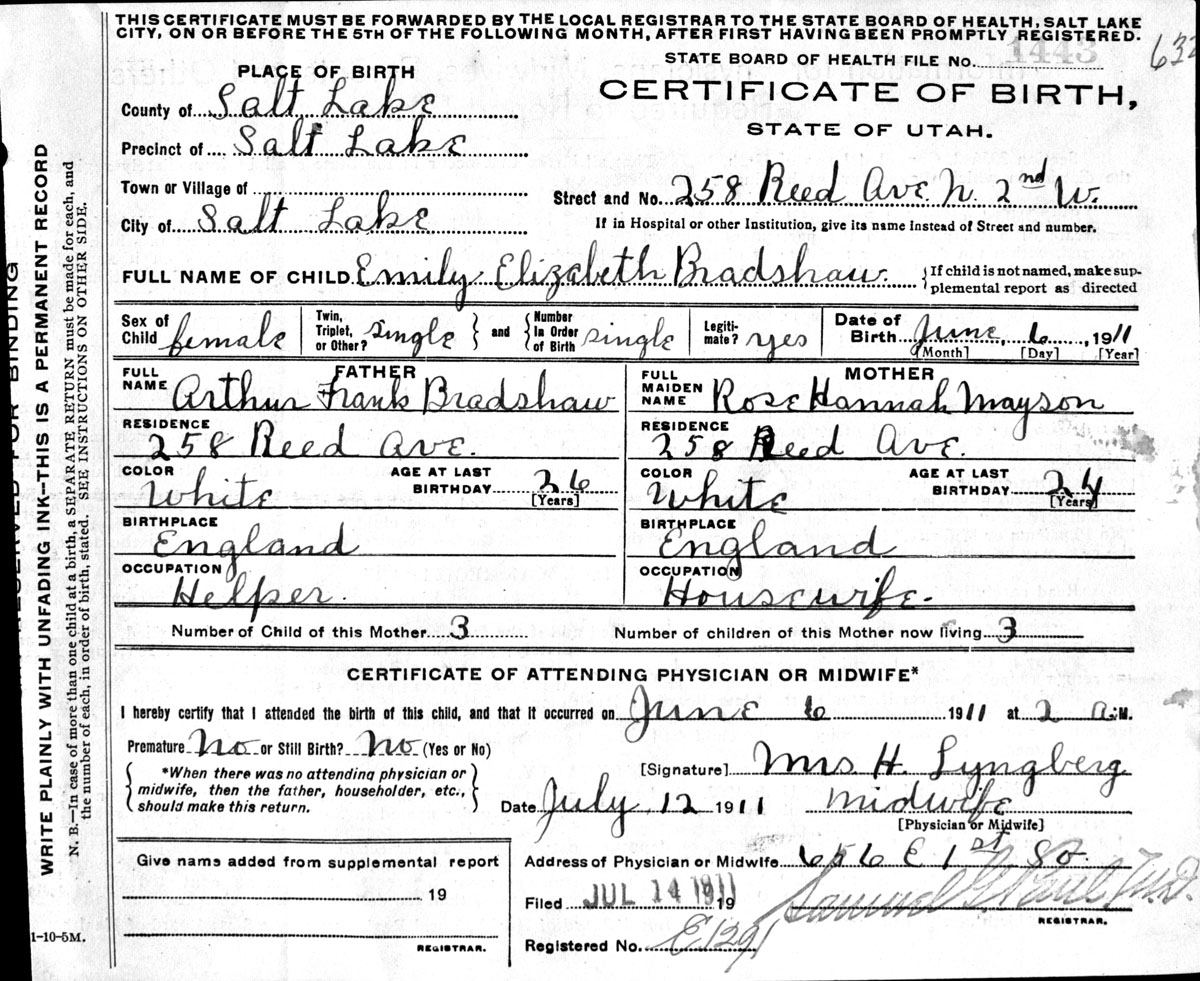 THIS CERTIFICATE MUST BE FORWARDED BY THE LOCAL REGISTRAR TO THE STATE BOARD OF HEALTH, SALT LAKE
CITY, ON OR BEFORE THE 5TH OF THE FOLLOWING MONTH, AFTER FIRST HAVING BEEN PROMPTLY REGISTERED.
STATE BOARD OF HEALTH FILE No. 1443
632
PLACE OF BIRTH
CERTIFICATE OF BIRTH,
STATE OF UTAH.
County of Salt Lake
Precinct of Salt Lake
Town or Village of
Street and No. 258 Reed Ave. N. 2nd W.
City of Salt Lake
If in Hospital or other Institution, give its name instead of Street and number.
FULL NAME OF CHILD Emily Elizabeth Bradshaw. {If child is not named, make sup-
plemental report as directed
Sex of Child female
Twin, Triplet, or Other? single } and { Number In Order of Birth single
Legiti-mate? yes
Date of Birth June, 6, 1911
[Month] [Day] [Year]
FATHER
FULL NAME Arthur Frank Bradshaw
RESIDENCE
258 Reed Ave.
COLOR White AGE AT LAST BIRTHDAY 26
[Years]
BIRTHPLACE
England
OCCUPATION
Helper.
MOTHER
FULL MAIDEN NAME Rose Hannah Mayson
RESIDENCE
258 Reed Ave.
COLOR White AGE AT LAST BIRTHDAY 24
[Years]
BIRTHPLACE
England
OCCUPATION
Housewife.
Number of Child of this Mother 3 Number of children of this Mother now living 3
CERTIFICATE OF ATTENDING PHYSICIAN OR MIDWIFE*
I hereby certify that I attended the birth of this child, and that it occurred on June 6 1911 at 2 a.M.
Premature No or Still Birth? No (Yes or No)
{ *When there was no attending physician or
midwife, then the father, householder, etc.,
should make this return. }
[Signature] Mrs H. Lyngberg
Date July 12 1911 midwife
[Physician or Midwife]
Give name added from supplemental report
19
REGISTRAR.
Address of Physician or Midwife 656 E 1st So
Filed JUL 14 1911 19 Samuel G Paul M.D.
REGISTRAR.
Registered No. E1291
1-10-5M.
RESERVED FOR BINDING
WRITE PLAINLY WITH UNFADING INK—THIS IS A PERMANENT RECORD
N. B.—In case of more than one child at a birth, a SEPARATE RETURN must be made for each, and
the number of each, in order of birth, stated. SEE INSTRUCTIONS ON OTHER SIDE.